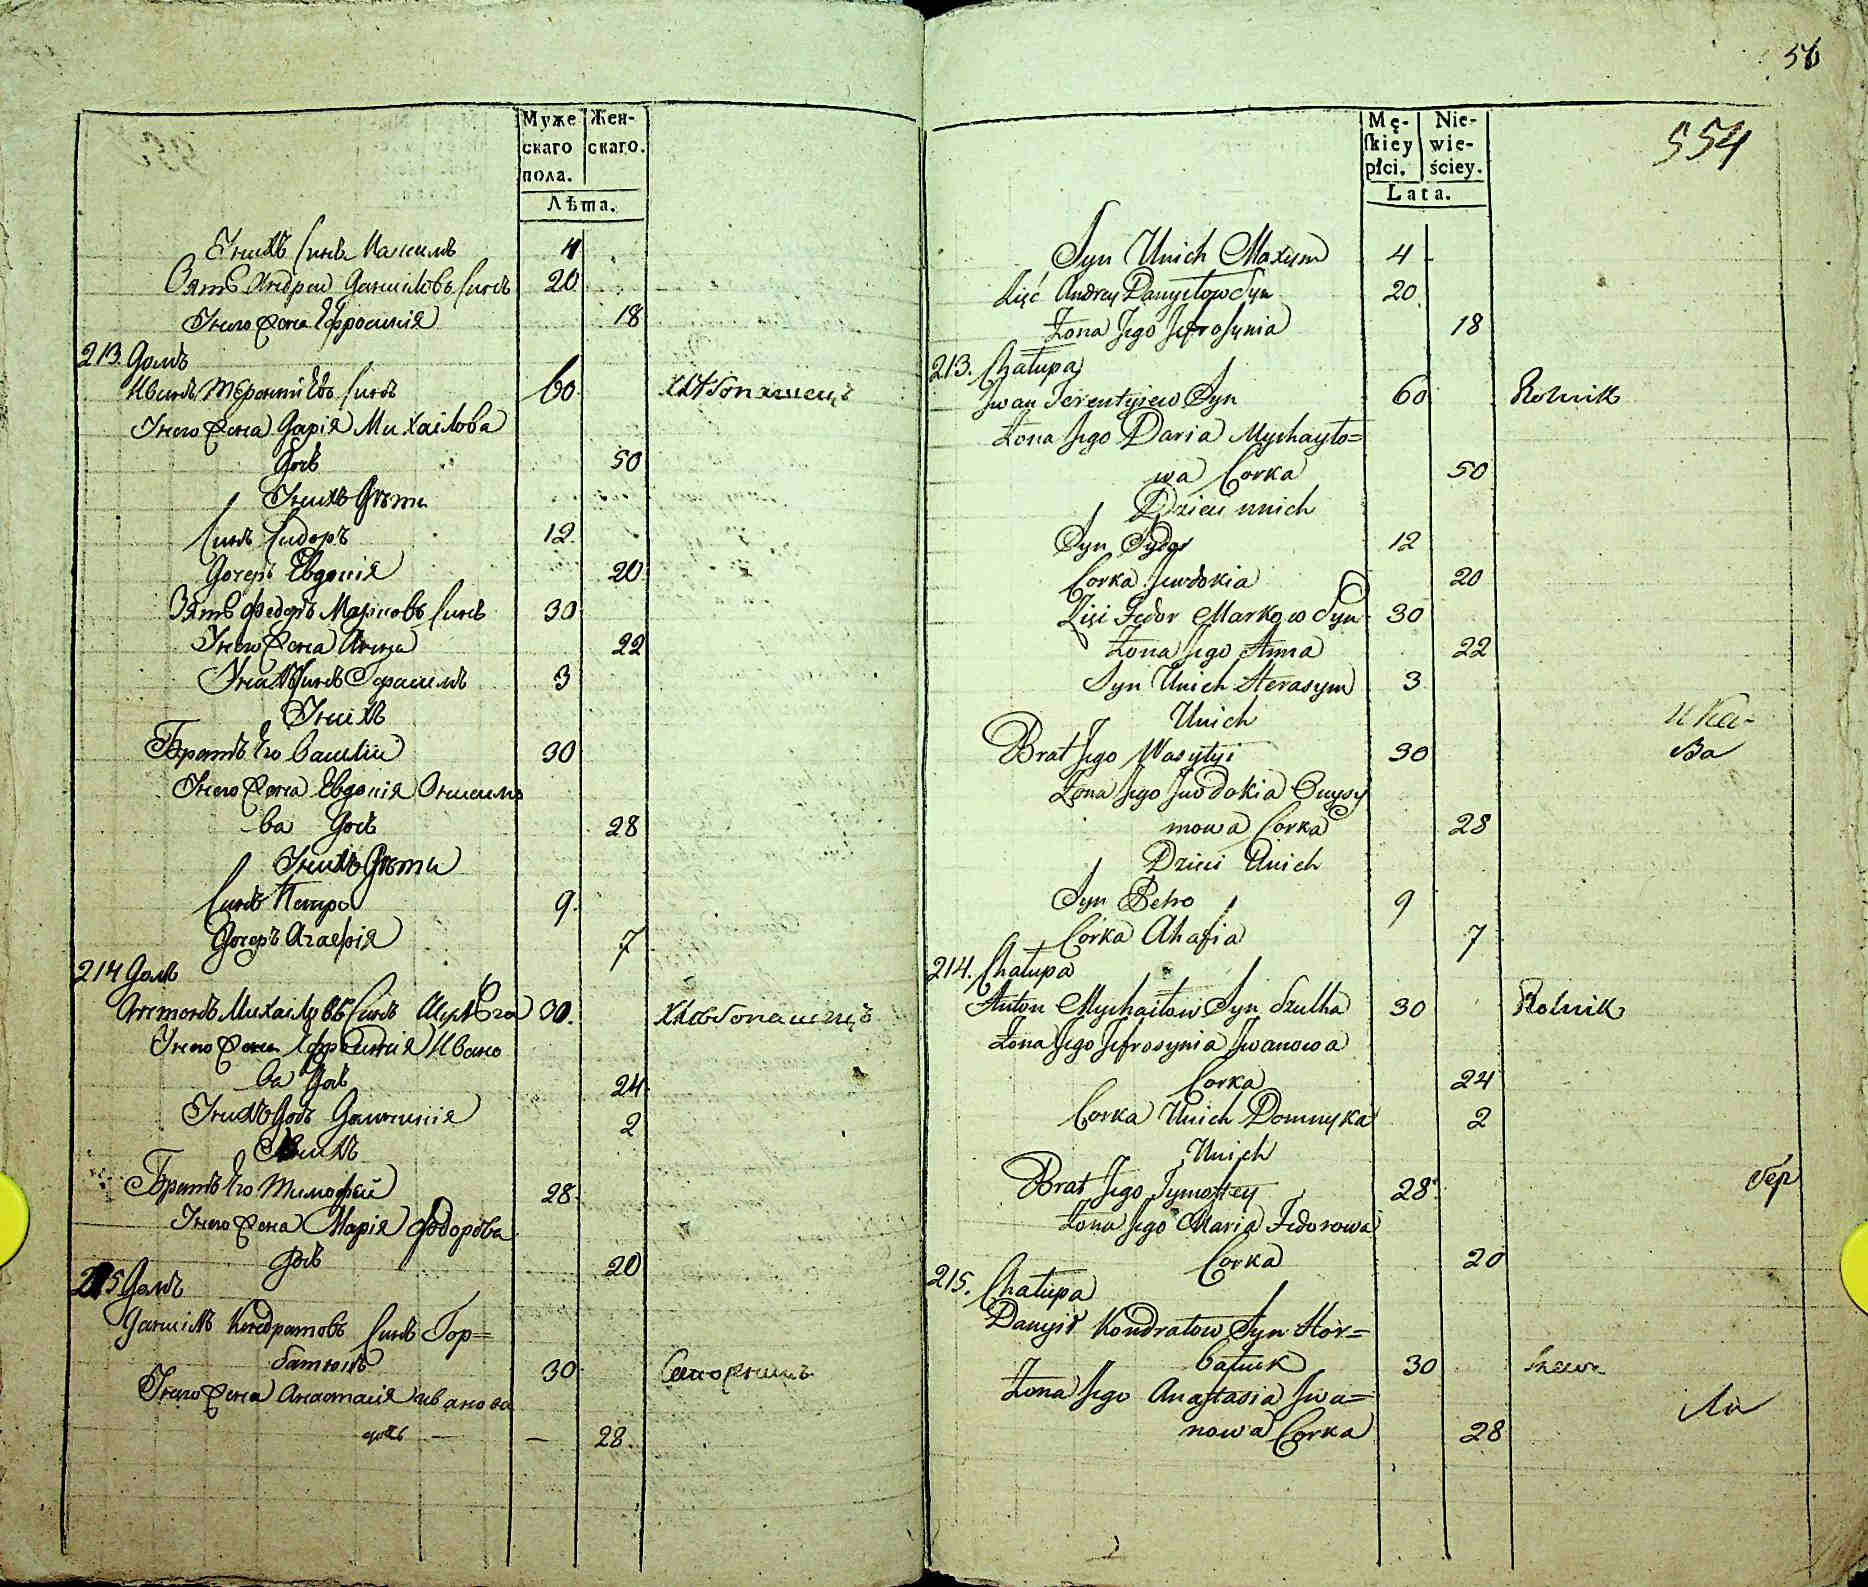 Муже
скаго
пола.
Жен-
скаго.
Лѣта.
Унихъ Синъ Максимъ 4
Зять Андрей Даниловъ Синъ 20
Унего Жена Ефросинія 18
213. Домъ
Иванъ Терентіевъ Синъ 60 хлѣбопашецъ
Унего Жена Дарія Михаілова
Дочь 50
Унихъ Дѣти
Синъ Сидоръ 12
Дочерь Евдокія 20
Зять Федоръ Марковъ Синъ 30
Унего Жена Анна 22
Унихъ Синъ Герасимъ 3
Унихъ
Братъ Его Василій 30
Унего Жена Евдокія Онисимо
ва Дочь 28
Унихъ Дѣти
Синъ Петро 9
Дочерь Агафія 7
214 Домъ
Антонъ Михаіловъ Синъ Шульга 30. хлѣбопашецъ
Унего Жена Ефросинія Ивано
ва Дочь 24
Унихъ Дочь Домникія 2
Унихъ
Братъ Его Тимофей 28
Унего Жена Марія Федорова
Дочь 20
215 Домъ
Данилъ Кондратовъ Синъ Гор=
батюкъ 30
Унего Жена Анастасія Иванова
дочь — — 28
56
554
Mę-
ſkiey
płci.
Nie-
wie-
ściey.
Lata.
Syn Unich Maxym 4
Zięć Andrey Danyłow Syn 20
Żona Jego Jefrosynia 18
213. Chałupa
Jwan Terentyiew Syn 60 Rolnik
Żona Jego Daria Mychayło=
wa Corka 50
Dzieci unich
Syn Sydor 12
Corka Jewdokia 20
Zięć Fedor Markow Syn 30
Żona Jego Anna 22
Syn Unich Herasym 3
Unich
Brat Jego Wasylyi 30
Żona Jego Jwdokia Onysy
mowa Corka 28
Dzieci Unich
Syn Petro 9
Corka Ahafia 7
214. Chałupa
Anton Mychaiłow Syn Szulha 30 Rolnik
Żona Jego Jefrosynia Jwanowa
Corka 24
Corka Unich Domnyka 2
Unich
Brat Jego Tymoftey 28
Żona Jego Maria Fedorowa
Corka 20
215. Chałupa
Danyił Kondratow Syn Hor=
batiuk 30
Żona Jego Anastasia Jwa=
nowa Corka 28